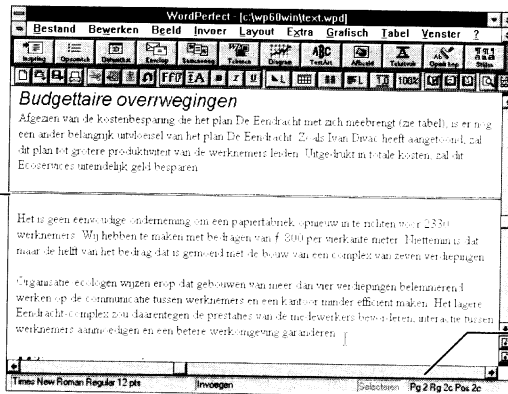 WordPerfect - [c:\wp60win\text.wpd]
Bestand Bewerken Beeld Invoer Layout Extra Grafisch Tabel Venster ?
Inspring Opsomtek Datumtkst Envelop Samenvoeg Tekenen Diagram TextArt Afbeeld Tekstvak Opnk kop Stijlen
100%
Budgettaire overwegingen
Afgezien van de kostenbesparing die het plan De Eendracht met zich meebrengt (zie tabel), is er nog
een ander belangrijk uitvloeisel van het plan De Eendracht. Zoals Ivan Divac heeft aangetoond, zal
dit plan tot grotere produktiviteit van de werknemers leiden. Uitgedrukt in totale kosten, zal dit
Ecoservices uiteindelijk geld besparen
Het is geen eenvoudige onderneming om een papierfabriek opnieuw in te richten voor 2330
werknemers. Wij hebben te maken met bedragen van f 800 per vierkante meter. Niettemin is dat
maar de helft van het bedrag dat is gemoeid met de bouw van een complex van zeven verdiepingen
Organisatie-ecologen wijzen erop dat gebouwen van meer dan vier verdiepingen belemmerend
werken op de communicatie tussen werknemers en een kantoor minder efficiënt maken. Het lagere
Eendracht-complex zou daarentegen de prestaties van de medewerkers bevorderen, interactie tussen
werknemers aanmoedigen en een betere werkomgeving garanderen
Times New Roman Regular 12 pts Invoegen Selecteren Pg 2 Rg 2c Pos 2c